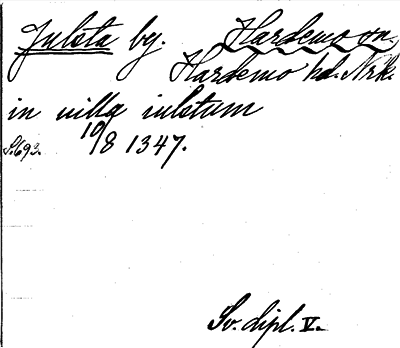 Julsta by. Hardemo sn.
Hardemo hd. Nrk.
in villa iulstum
S. 693. 10/8 1347.
Sv. dipl. V.